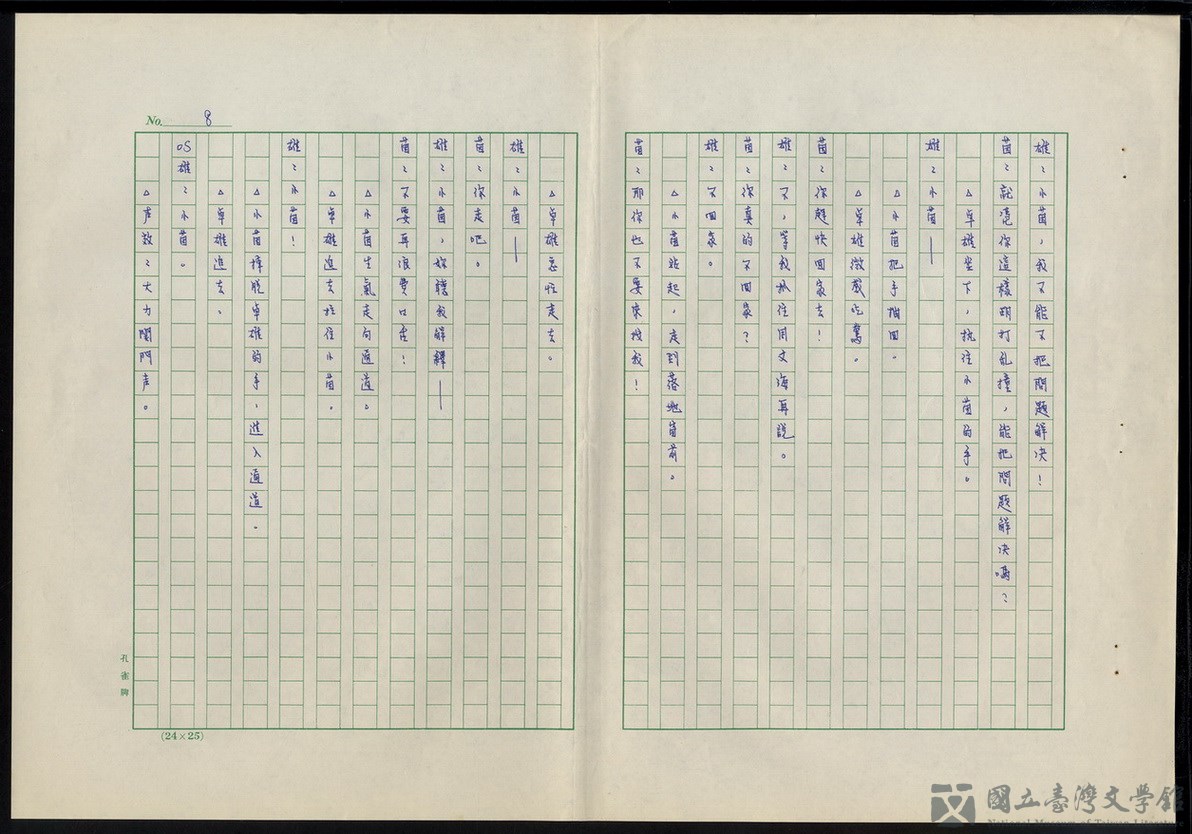 雄：小茵，我不能不把問題解決！
茵：就憑你這樣胡打乱撞，能把問題解決嗎？
△卓雄坐下，执住小茵的手。
雄：小茵——
△小茵把手抽回。
△卓雄微感吃驚。
茵：你趕快回家去！
雄：不，等我抓住周文海再說。
茵：你真的不回家？
雄：不回家。
△小茵站起，走到落地窗前。
茵：那你也不要來找我！
No. 8
△卓雄忘性走去。
雄：小茵——
茵：你走吧。
雄：小茵，妳聽我解釋——
茵：不要再浪費口舌！
△小茵生氣走向通道。
△卓雄追去拉住小茵。
雄：小茵！
△小茵摔脫卓雄的手，進入通道。
△卓雄追去。
OS雄：小茵。
△声效：大力関門声。
孔雀牌
(24×25)
國立臺灣文學館
National Museum of Taiwan Literature